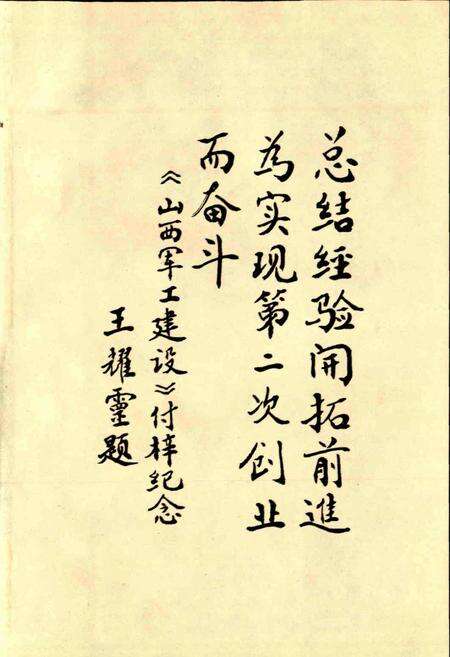 总结经验开拓前進
為实现第二次创业
而奋斗
《山西军工建设》付梓纪念
王耀靈题